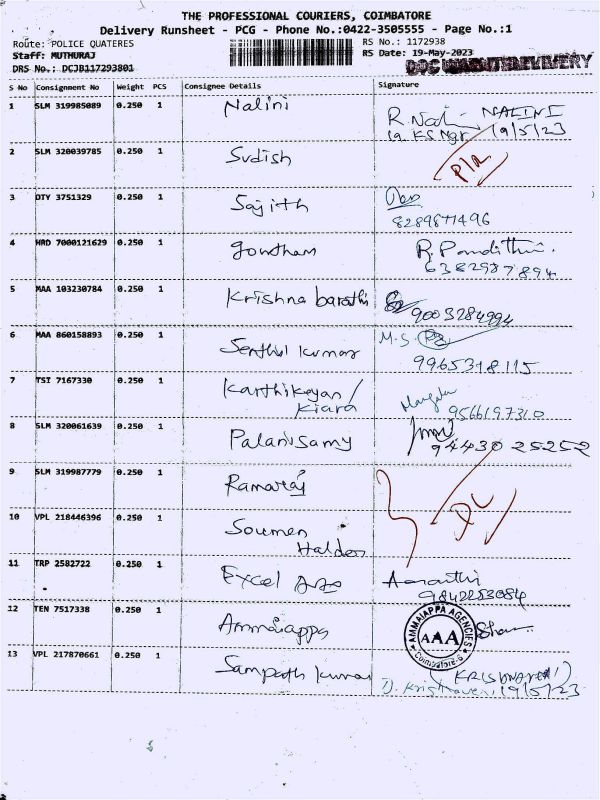 THE PROFESSIONAL COURIERS, COIMBATORE
Delivery Runsheet - PCG - Phone No.:0422-3505555 - Page No.:1
Route: POLICE QUATERES RS No.: 1172938
Staff: MUTHURAJ RS Date: 19-May-2023
DRS No.: DCJB117293801
S No Consignment No Weight PCS Consignee Details Signature
1 SLM 319985089 0.250 1 Nalini R. NALINI
19/5/23
2 SLM 320039785 0.250 1 Sudish
3 DTY 3751329 0.250 1 Sajith
8289871496
4 HRD 7000121629 0.250 1 Gowtham
6382987894
5 MAA 103230784 0.250 1 Krishna barathi 9003284994
6 MAA 860158893 0.250 1 Senthil kumar M.S.
9965318115
7 TSI 7167330 0.250 1 Karthikeyan /
Kiara 9566197310
8 SLM 320061639 0.250 1 Palanisamy 94430 25252
9 SLM 319987779 0.250 1 Ramaraj
10 VPL 218446396 0.250 1 Soumen
Halder
11 TRP 2582722 0.250 1 Excel Aarathi
9842253084
12 TEN 7517338 0.250 1 Ammaiappa AMMAIAPPA AGENCIES
AAA
Coimbatore-6
13 VPL 217870661 0.250 1 Sampath kumar
19/5/23